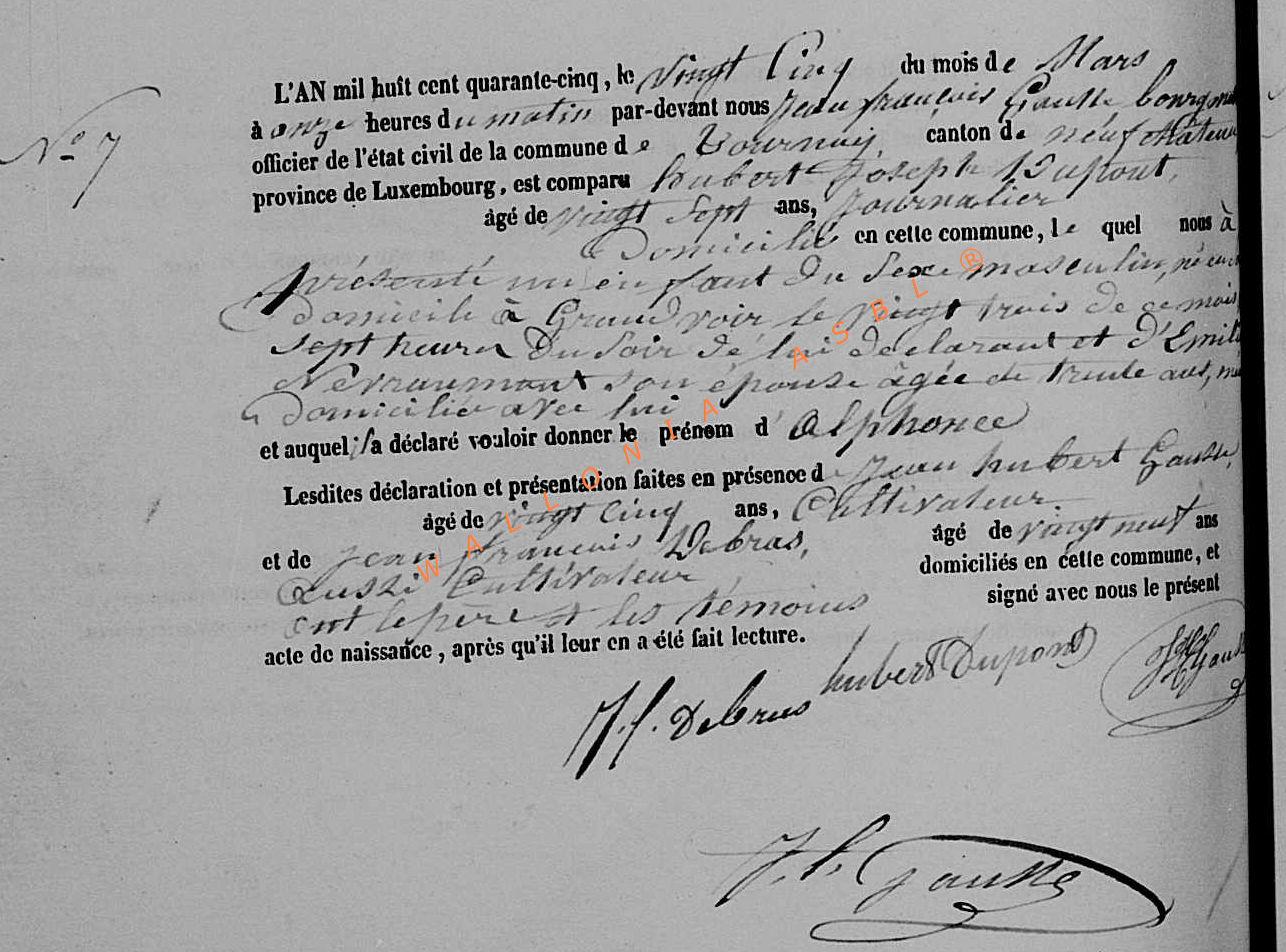 N° 7
L'AN mil huit cent quarante-cinq, le vingt Cinq du mois de Mars
à onze heures du matin par-devant nous Jean françois Gausse bourgmes
officier de l'état civil de la commune de Tournay canton de neufchâteau
province de Luxembourg, est comparu hubert Joseph Dupont,
âgé de vingt Sept ans, Journalier
Domicilié en cette commune, le quel nous à
présenté un enfant du Sexe masculin, né en
domicile à Grandvoir le vingt trois de ce mois
Sept heures Du Soir de lui déclarant et d'Emili
Nevraumont son épouse âgée de trente ans,
Domiciliée avec lui
et auquel il a déclaré vouloir donner le prénom d' Alphonce
Lesdites déclaration et présentation faites en présence de Jean hubert Gausse,
âgé de vingt Cinq ans, Cultivateur
et de Jean françois Debras, âgé de vingt neuf ans
Aussi Cultivateur domiciliés en cette commune, et
ont le père et les témoins signé avec nous le présent
acte de naissance, après qu'il leur en a été fait lecture.
hubert Dupont
J. f. Debras
J. h. Gausse
WALLONIA ASBL ®